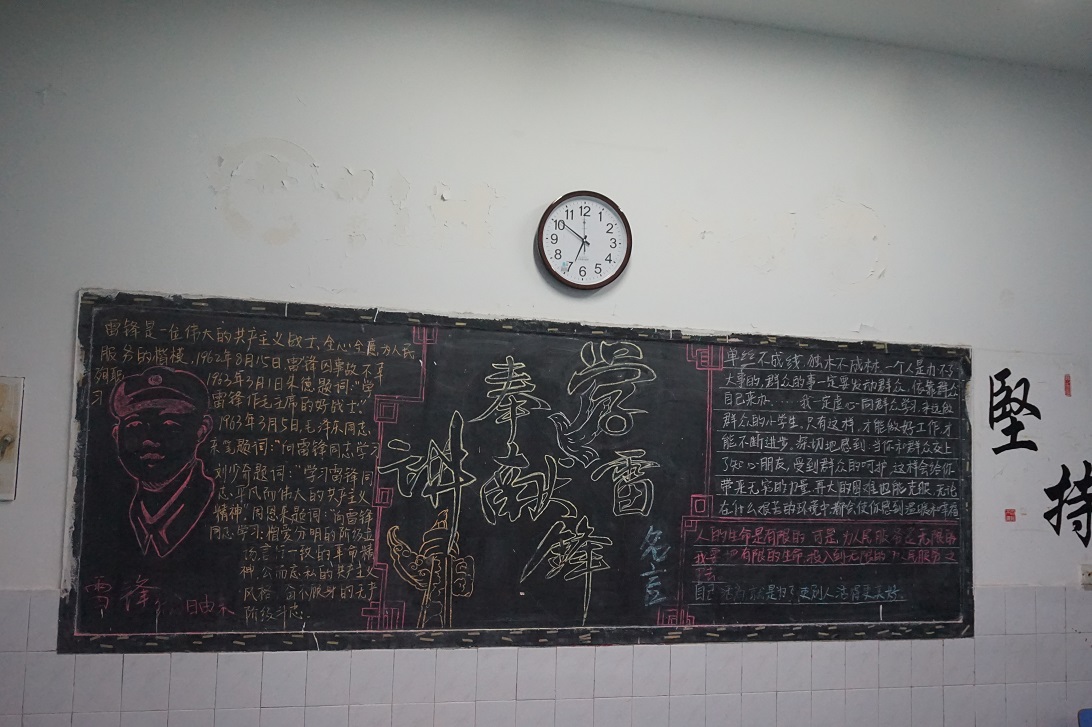 12
1
2
3
4
5
6
7
8
9
10
11
雷锋是一位伟大的共产主义战士,全心全意为人民
服务的楷模,1962年8月15日,雷锋因事故不幸
1963年3月1日朱德题词:"学
习
雷锋作毛主席的好战士"
1963年3月5日,毛泽东同志
来笔题词:"向雷锋同志学习
刘少奇题词:"学习雷锋同
志平凡而伟大的共产主义
精神"周恩来题词:"向雷锋
同志学习:憎爱分明的阶级立
言行一致的革命精
神,公而忘私的共产主义
风格 奋不顾身的无产
阶级斗志
雷锋 由来
学雷锋
奉献
讲
名言
单丝不成线,独木不成林,一个人是办不了
大事的,群众的事一定要发动群众、依靠群众
自己来办,……我一定虚心向群众学习,永远做
群众的小学生,只有这样,才能做好工作,才
能不断进步,深切地感到:当你和群众交上
了知心朋友,受到群众的 这样会给你
带来无穷的力量,再大的困难也能克服,无论
在什么艰苦的环境中都会使你感到温暖和幸福
人的生命是有限的 可是,为人民服务是无限的
我要把有限的生命,投入到无限的为人民服务之
中去
自己活着就是为了使别人活得更美好.
坚
持